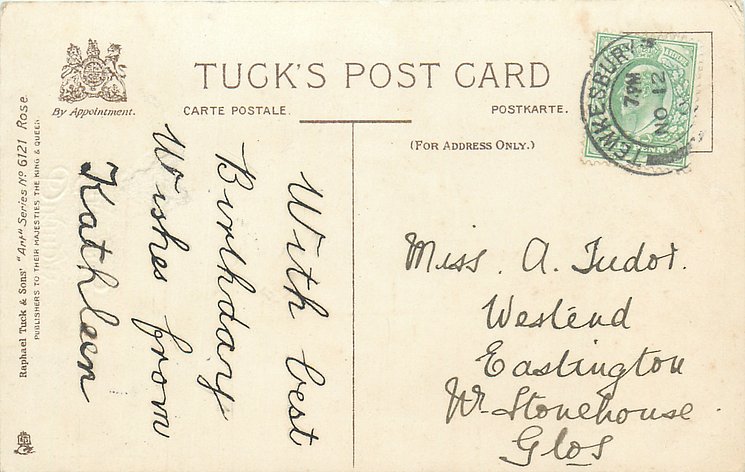 TUCK'S POST CARD
CARTE POSTALE.
POSTKARTE.
By Appointment.
(FOR ADDRESS ONLY.)
Raphael Tuck & Sons' "Art" Series No 6121 Rose.
PUBLISHERS TO THEIR MAJESTIES THE KING & QUEEN
TEWKESBURY
7.PM
NO 12
With best
Birthday
Wishes from
Kathleen
Miss. A. Tudor.
Westend
Eastington
Nr Stonehouse.
Glos